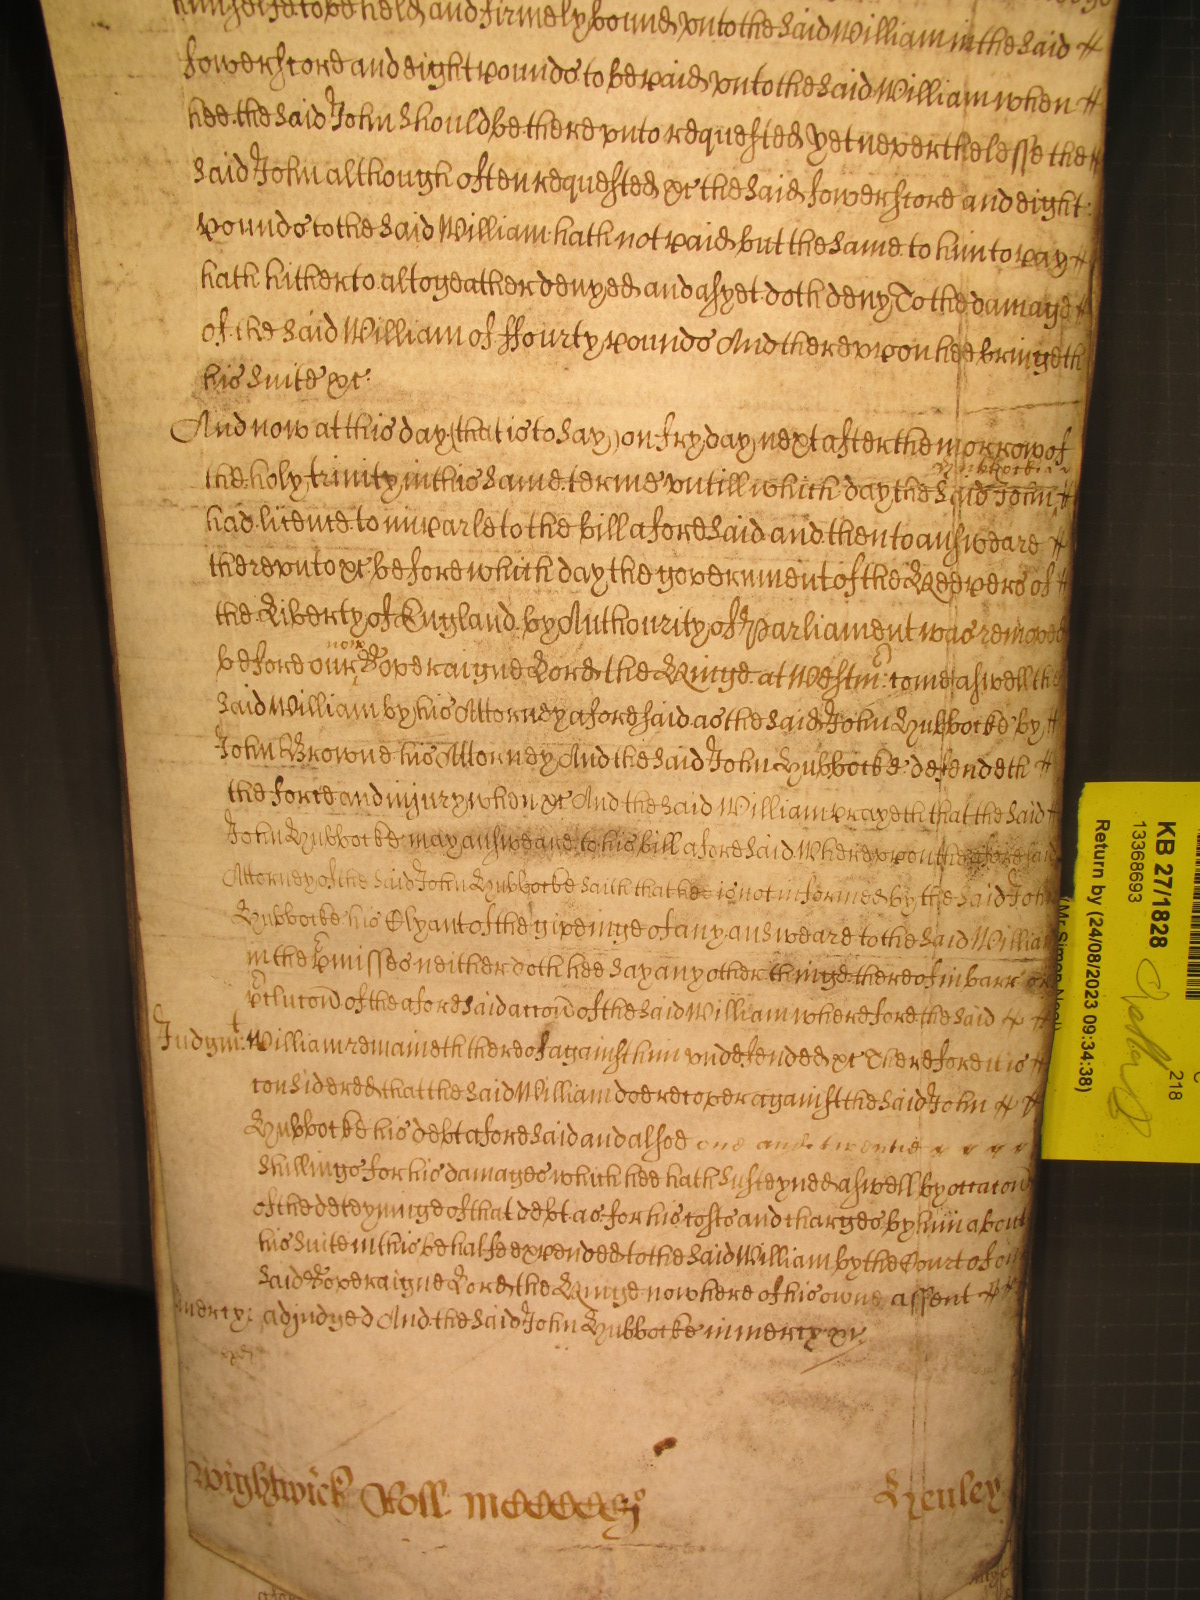 himselfe to be held and firmely bound vnto the said William in the said
fowerscore and eight pounds to be paid vnto the said William when
hee the said John should be therevnto requested yet neverthelesse the
said John although often requested &c the said fowerscore and eight
pounds to the said William hath not paid but the same to him to pay
hath hitherto altogeather denyed and as yet doth deny To the damage
of the said William of ffourty pounds And therevpon hee bringeth
his suite &c
And now at this day (that is to say) on fryday next after the morrow of
the holy trinity in this same terme vntill which day the said John
Hubbocke
had licence to imparle to the bill aforesaid and then to answeare
therevnto &c before which day the government of the Keepers of
the Liberty of England by Authourity of Parliament was removed
before our now Soveraigne Lord the Kinge at Westm: come aswell the
said William by his Attorney aforesaid as the said John Hubbocke by
John Browne his Attorney And the said John Hubbocke defendeth
the force and injury when &c And the said William prayeth that the said
John Hubbocke may answeare to his bill aforesaid Wherevpon the aforesaid
Attorney of the said John Hubbocke saith that hee is not informed by the said John
Hubbocke his Clyant of the giveinge of any answeare to the said William
in the p'misses neither doth hee say any other thinge thereof in barr or
p'clucon of the aforesaid accon of the said William wherefore the said
Judgmt: William remaineth thereof against him vndefended &c Therefore it is
considered that the said William doe recover against the said John
Hubbocke his debt aforesaid and alsoe one and twentie
shillings for his damages which hee hath susteyned aswell by occacon
of the deteyninge of that debt as for his costs and charges by him about
his suite in this behalfe expended to the said William by the Court of our
said Soveraigne Lord the Kinge now here of his owne assent
mercy: adjudged And the said John Hubbocke in mercy &c
Wightwick Roll
Henley
KB 27/1828
13368693
218
Return by (24/08/2023 09:34:38)